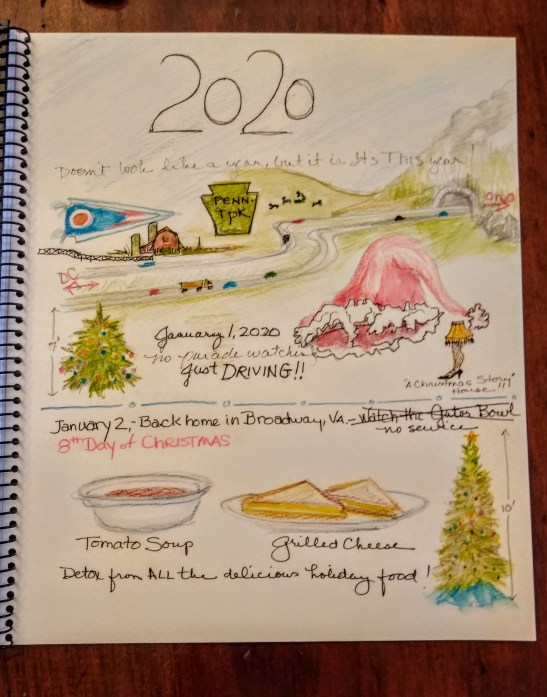 2020
Doesn't look like a year, but it is. It's This year!
PENN.
TPK
OHIO
DC
7'
January 1, 2020
no parade watching
Just DRIVING!!
"A Christmas Story
House"!!
January 2,- Back home in Broadway, VA. - Watch the Gator Bowl
no service
8th Day of CHRISTMAS
10'
Tomato Soup
Grilled Cheese
Detox from ALL the delicious holiday food!